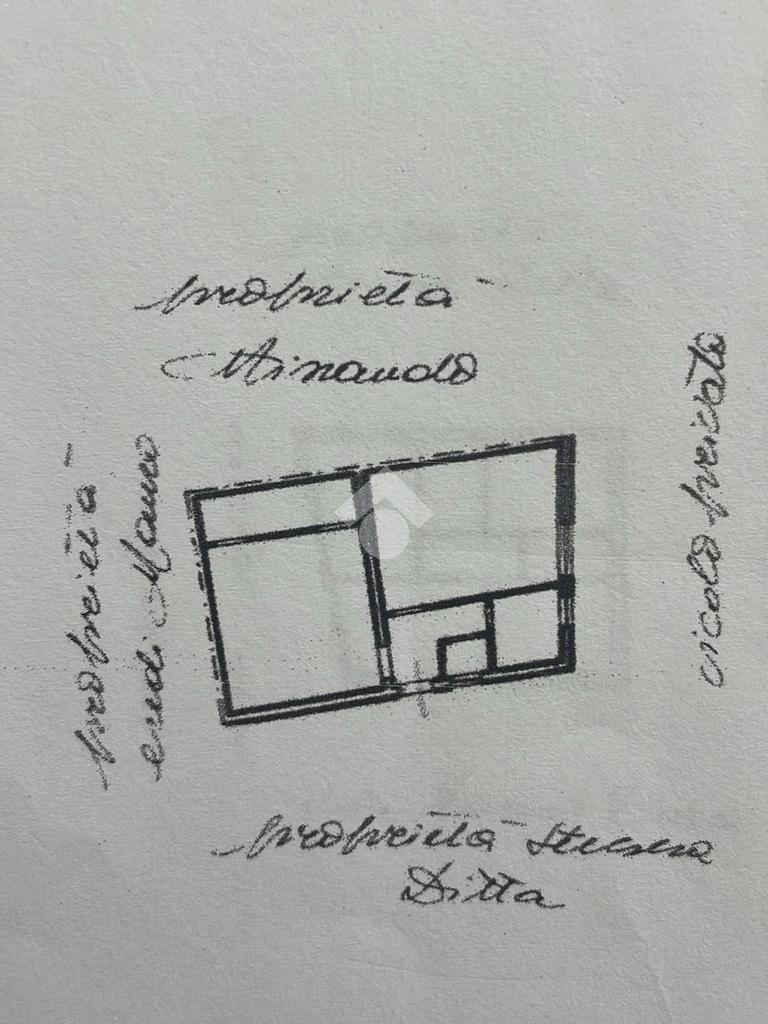 proprietà
Minaudo
proprietà
eredi Mauro
vicolo privato
proprietà stessa
Ditta